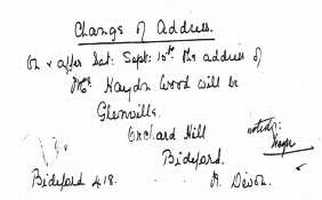 Change of Address.
On & after Sat: Sept: 15th the address of
Mr Haydn Wood will be
Glenville.
Orchard Hill
noted
Bideford.
Bideford 418.
N. Devon.